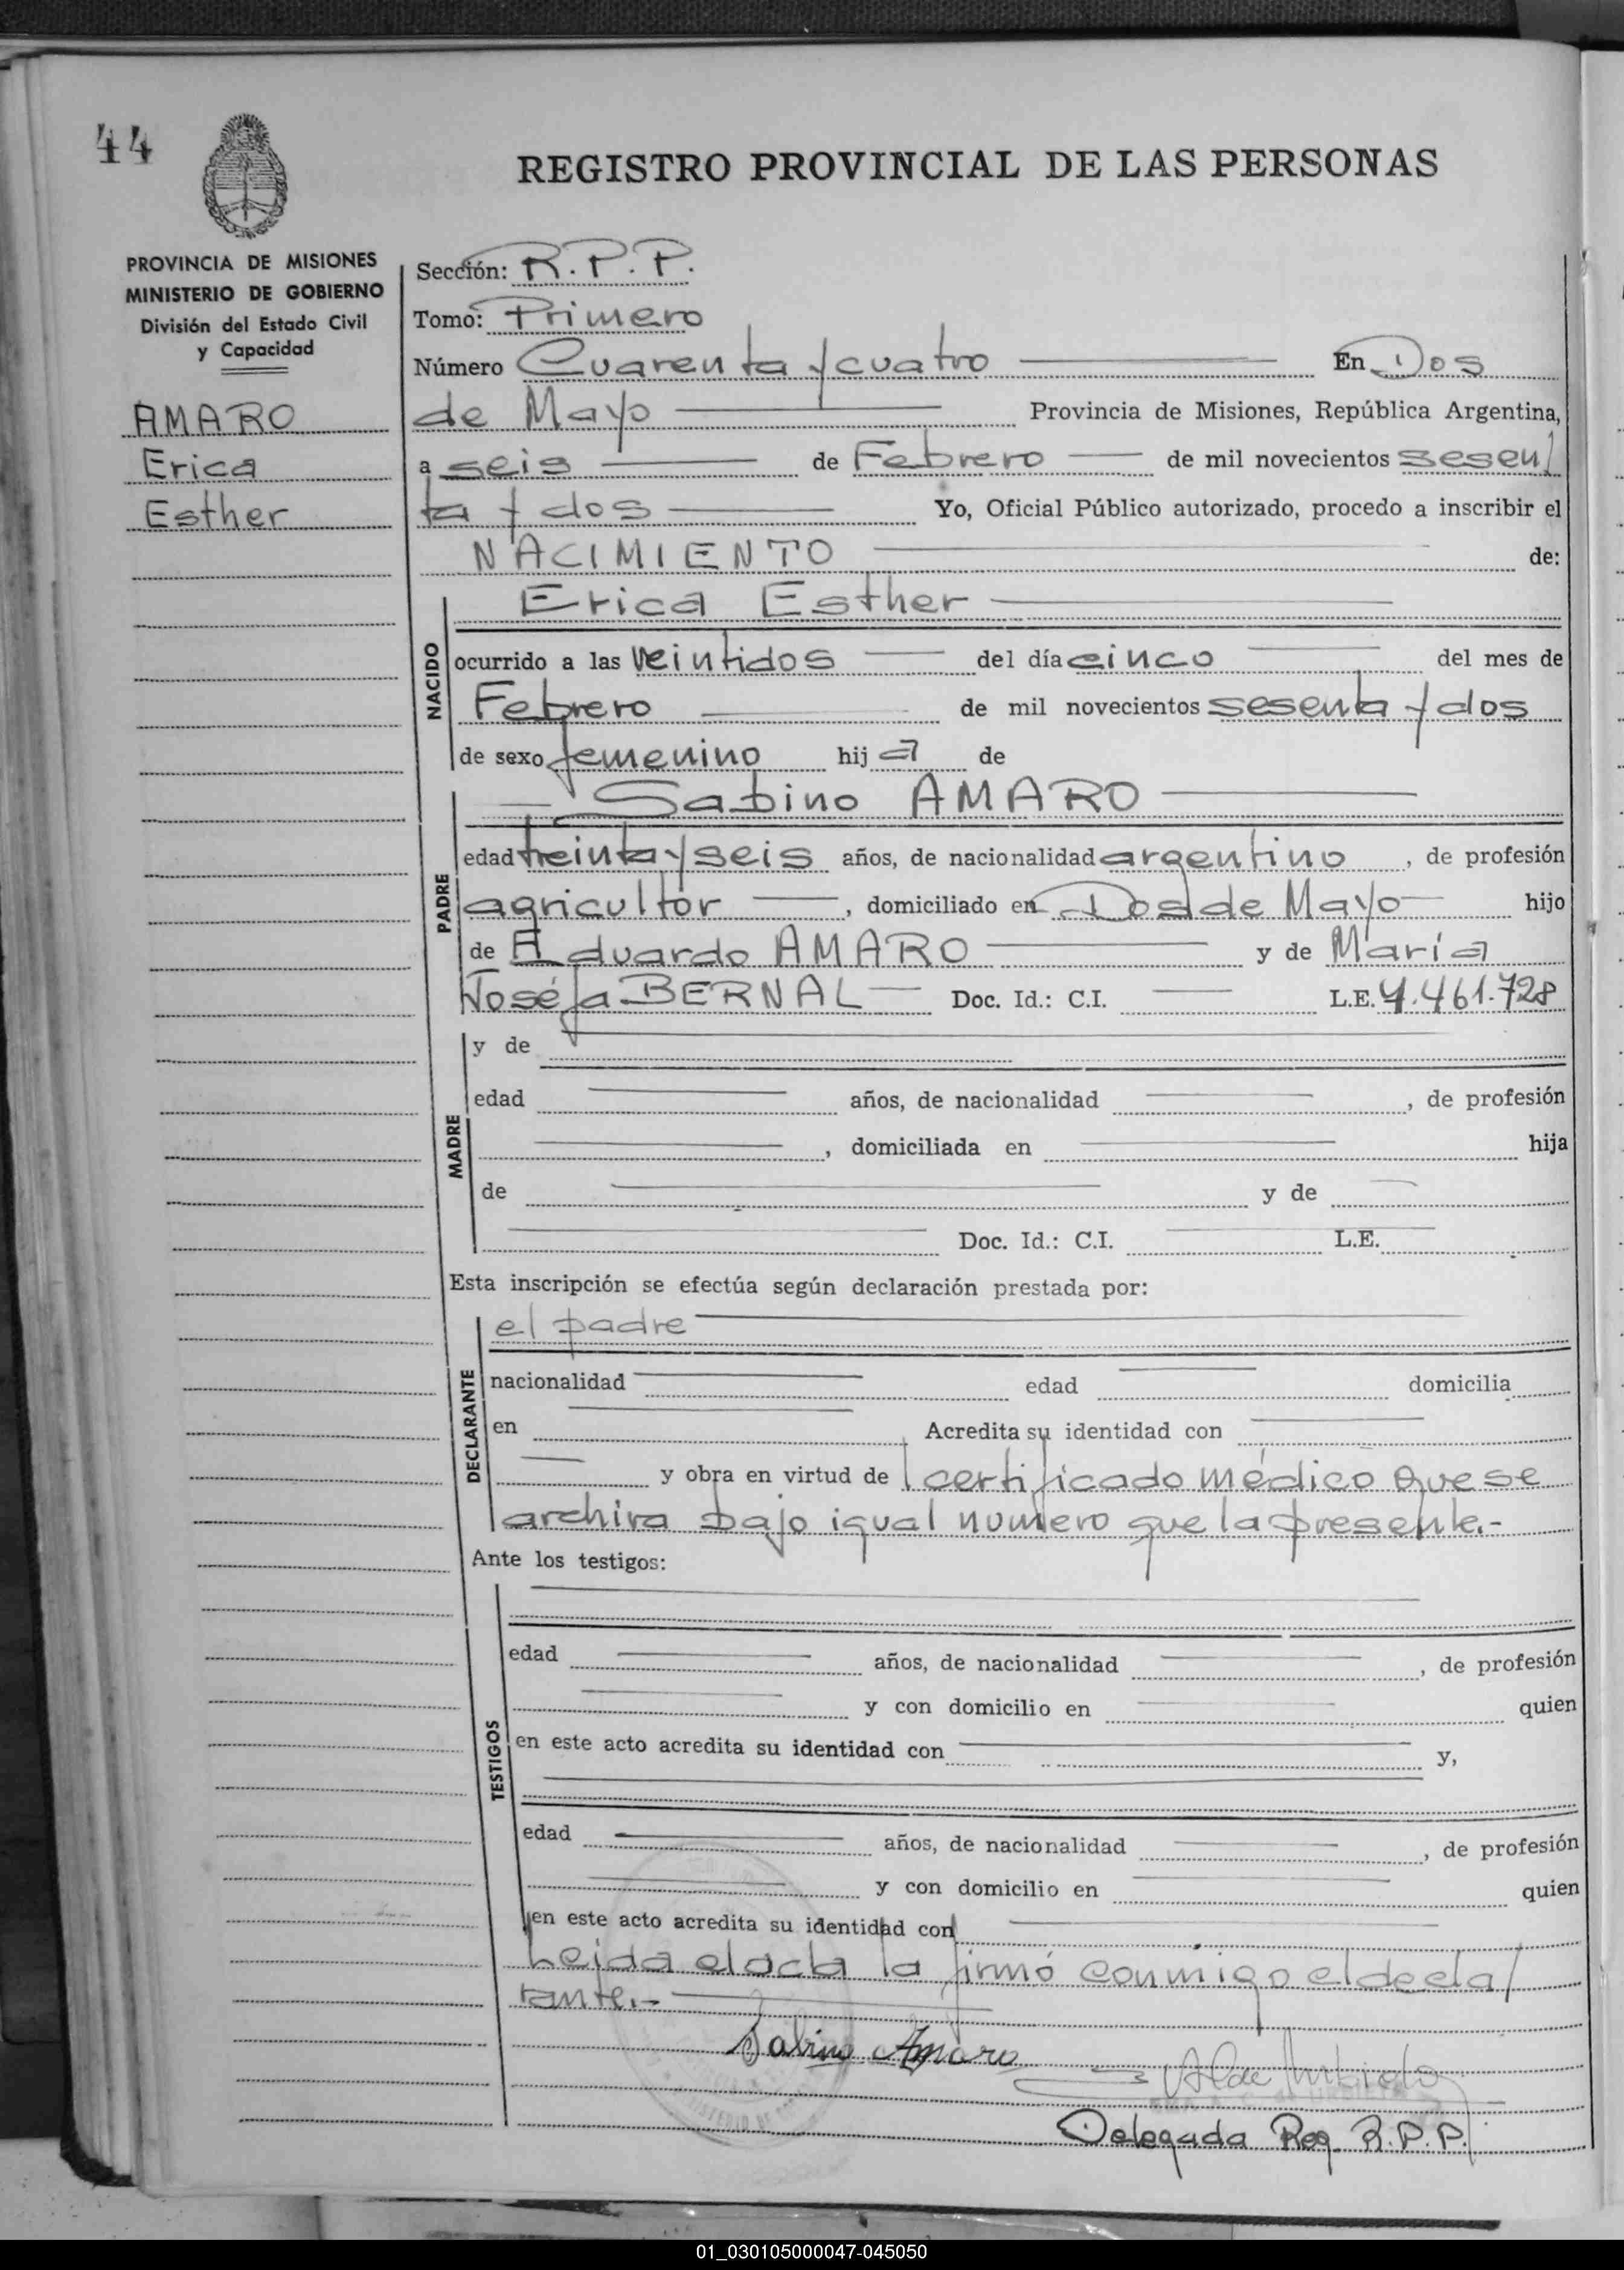 44
REGISTRO PROVINCIAL DE LAS PERSONAS
PROVINCIA DE MISIONES
MINISTERIO DE GOBIERNO
División del Estado Civil
y Capacidad
AMARO
Erica
Esther
Sección: R.P.P.
Tomo: Primero
Número Cuarenta y cuatro En Dos
de Mayo Provincia de Misiones, República Argentina,
a seis de Febrero de mil novecientos sesen/
ta y dos Yo, Oficial Público autorizado, procedo a inscribir el
NACIMIENTO de:
NACIDO
Erica Esther
ocurrido a las veintidos del día cinco del mes de
Febrero de mil novecientos sesenta y dos
de sexo femenino hij a de
PADRE
Sabino AMARO
edad treinta y seis años, de nacionalidad argentino, de profesión
agricultor, domiciliado en Dos de Mayo hijo
de Eduardo AMARO y de María
Joséfa BERNAL Doc. Id.: C.I. L.E. 4.461.728
MADRE
y de
edad años, de nacionalidad , de profesión
, domiciliada en hija
de y de
Doc. Id.: C.I. L.E.
Esta inscripción se efectúa según declaración prestada por:
DECLARANTE
el padre
nacionalidad edad domicilia
en Acredita su identidad con
y obra en virtud de l certificado médico que se
archiva bajo igual numero que la presente.-
Ante los testigos:
TESTIGOS
edad años, de nacionalidad , de profesión
y con domicilio en quien
en este acto acredita su identidad con y,
edad años, de nacionalidad , de profesión
y con domicilio en quien
en este acto acredita su identidad con
Leida el acta la firmó conmigo el decla/
rante.-
Sabino Amaro
Delegada Reg. R.P.P.
01_030105000047-045050